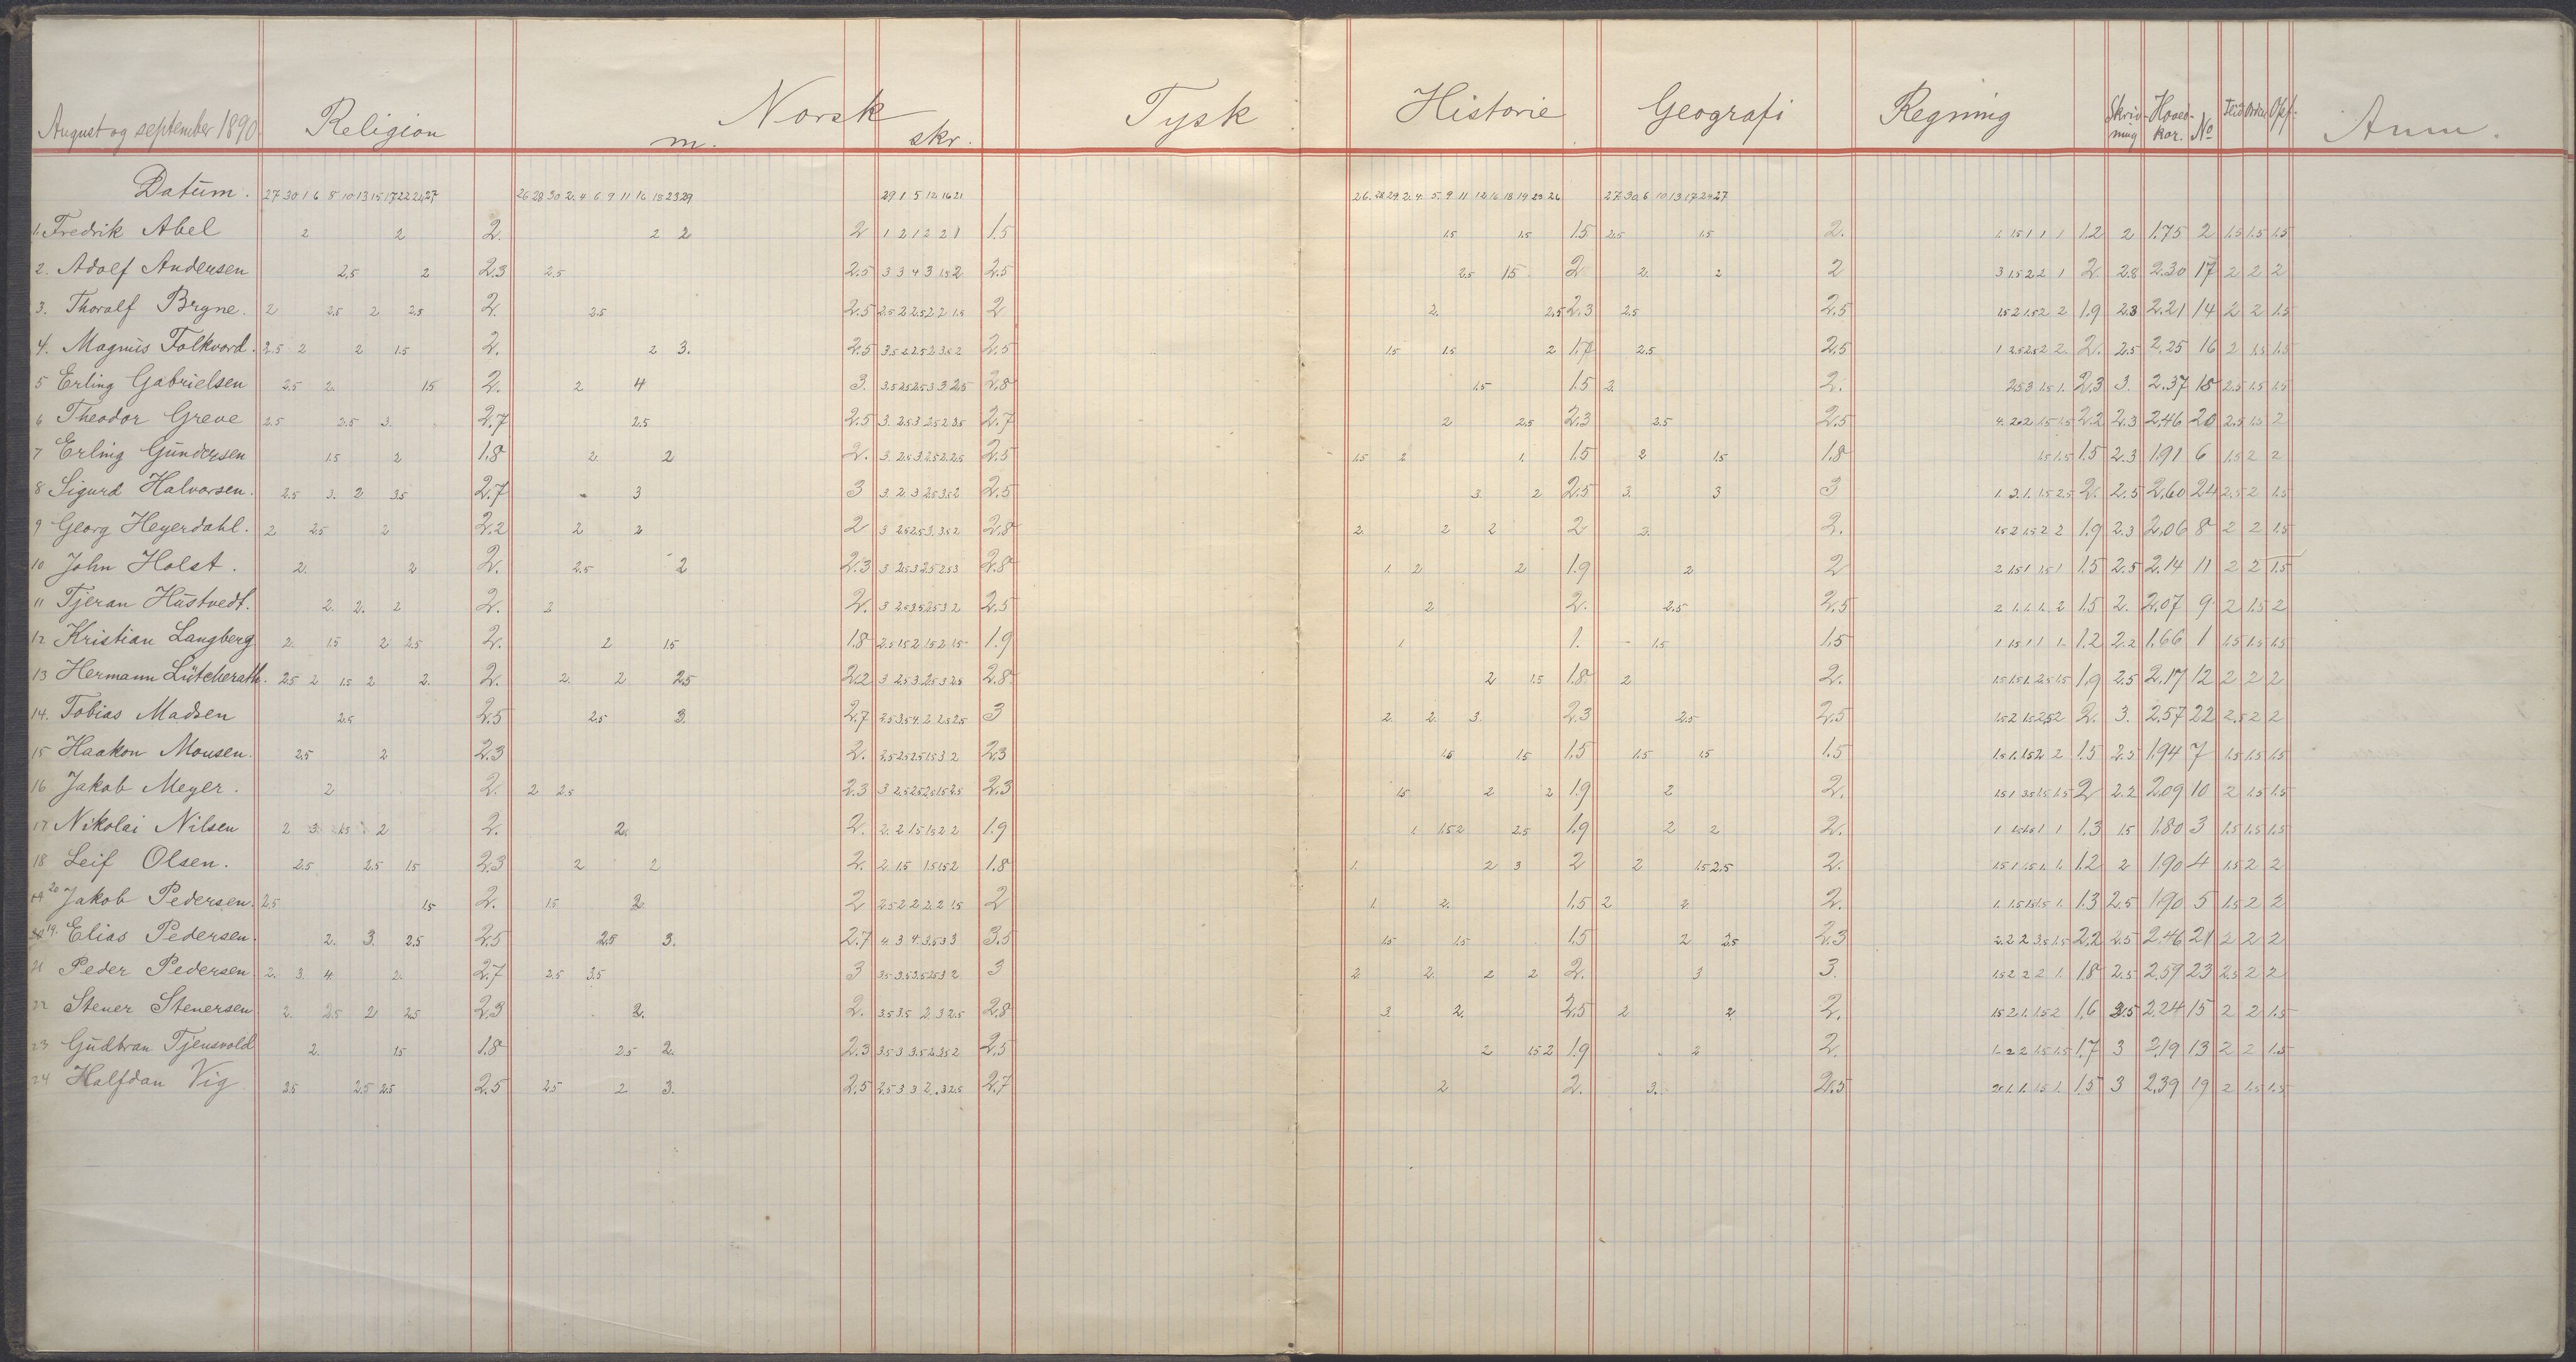 August og september 1890. Religion Norsk m. skr. Tysk Historie Geografi Regning Skriv-ning Hoved-kar. No Flid Orden Opf. Anm.
Datum. 27 30 1 6 8 10 13 15 17 22 24 27 26 28 30 2. 4 6 9 11 16 18 23 29 29 1 5 12 16 21 26. 28 29 2. 4. 5. 9 11 12 16 18 19 23 26 27 30 6 10 13 17 24 27
1. Fredrik Abel 2 2 2. 2 2 2 1 2 1 2 2 1 1.5 1.5 1.5 1.5 2.5 1.5 2. 1. 1.5 1 1 1 1.2 2 1.75 2 1.5 1.5 1.5
2. Adolf Andersen 2.5 2 2.3 2.5 2.5 3 3 4 3 1.5 2 2.5 2.5 1.5 2 2. 2 2 3 1.5 2 2 1 2. 2.8 2.30 17 2 2 2
3. Thoralf Bryne. 2 2.5 2 2.5 2. 2.5 2.5 2.5 2 2.5 2 2 1.5 2 2. 2.5 2.3 2.5 2.5 1.5 2 1.5 2 2 1.9 2.3 2.21 14 2 2 1.5
4. Magnus Folkvord. 2.5 2 2 1.5 2. 2 3. 2.5 2.5 1.5 1.5 2 1.7 2.5 2.5 2. 2.5 2.25 16 2 1.5 1.5
5 Erling Gabrielsen 2.5 2. 1.5 2. 2 4 3. 2.8 1.5 1.5 2. 2. 2.3 3. 2.37 18 2.5 1.5 1.5
6 Theodor Greve 2.5 2.5 3 2.7 2.5 2.5 2.7 2 2.5 2.3 2.5 2.5 2.2 2.3 2.46 20 2.5 1.5 2
7 Erling Gundersen 1.5 2 1.8 2. 2 2. 2.5 1.5 2 1. 1.5 2 1.5 1.8 1.5 1.5 1.5 2.3 1.91 6 1.5 2 2
8 Sigurd Halvorsen. 2.5 3. 2 3.5 2.7 3 3 2.5 3. 2 2.5 3. 3 3 2. 2.5 2.60 24 2.5 2 1.5
9 Georg Heyerdahl. 2 2.5 2 2.2 2 2 2 2.8 2. 2 2 2 2. 2. 1.5 2 1.5 2 2 1.9 2.3 2.06 8 2 2 1.5
10 John Holst. 2. 2 2. 2.5 2 2.3 2.8 1. 2 2 1.9 2 2 2 1.5 1 1.5 1 1.5 2.5 2.14 11 2 2 1.5
11 Tjeran Hustvedt. 2. 2. 2 2. 2 2. 2.5 2 2. 2.5 2.5 2 1. 1. 1. 2 1.5 2. 2.07 9 2 1.5 2
12 Kristian Langberg 2. 1.5 2 2.5 2. 2 1.5 1.8 1.9 1. 1. 1.5 1.5 1 1.5 1 1 1 1.2 2.2 1.66 1 1.5 1.5 1.5
13 Hermann Lütcherath. 2.5 2 1.5 2 2. 2. 2. 2 2.5 2.2 2.8 2 1.5 1.8 2 2. 1.9 2.5 2.17 12 2 2 2
14. Tobias Madsen 2.5 2.5 2.5 3. 2.7 3 2. 2. 3. 2.3 2.5 2.5 2. 3. 2.57 22 2.5 2 2
15 Haakon Monsen. 2.5 2 2.3 2. 2.3 1.5 1.5 1.5 1.5 1.5 1.5 1.5 2.5 1.94 7 1.5 1.5 1.5
16 Jakob Meyer. 2 2. 2 2.5 2.3 2.3 1.5 2 2 1.9 2 2. 2 2.2 2.09 10 2 1.5 1.5
17 Nikolai Nilsen 2 3. 1.5 2 2. 2. 2. 1.9 1 1.5 2 2.5 1.9 2 2 2. 1.3 1.5 1.80 3 1.5 1.5 1.5
18 Leif Olsen. 2.5 2.5 1.5 2.3 2 2 2. 1.8 1. 2 3 2 2 1.5 2.5 2. 1.2 2 1.90 4 1.5 2 2
20 Jakob Pedersen. 2.5 1.5 2. 1.5 2 2 2 1. 2. 1.5 2 2. 2. 1.3 2.5 1.90 5 1.5 2 2
19. Elias Pedersen. 2. 3. 2.5 2.5 2.5 3. 2.7 4. 3 4. 3.5 3 3 3.5 1.5 1.5 1.5 2 2.5 2.3 2.2 2.5 2.46 21 2 2 2
21 Peder Pedersen 2. 3. 4. 2. 2.7 2.5 3.5 3 3 2. 2. 2 2 2. 3 3. 1.5 2 2 2 1. 1.8 2.5 2.59 23 2.5 2 2
22 Stener Stenersen 2. 2.5 2 2.5 2.3 2. 2. 2.8 3. 2. 2.5 2 2 2. 1.5 2 1. 1.5 2 1.6 2.24 15 2 2 1.5
23 Gudbran Tjensvold 2. 1.5 1.8 2.5 2. 2.3 2.5 2 1.5 2 1.9 2 2. 1.7 3 2.19 13 2 2 1.5
24 Halfdan Vig 2.5 2.5 2.5 2.5 2.5 2 3. 2.5 2.7 2 2. 3. 2.5 1.5 3 2.39 19 2 1.5 1.5